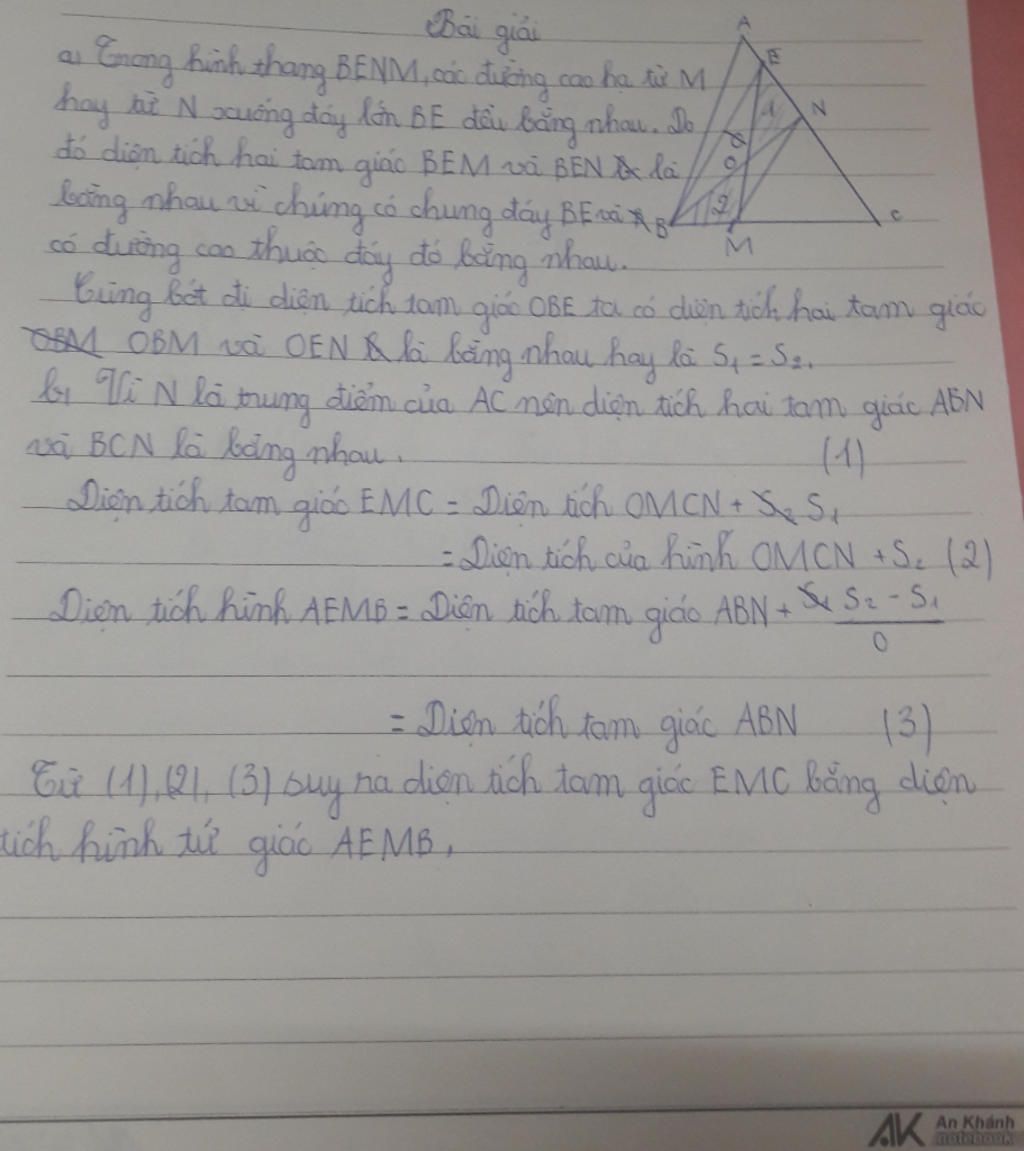 Bài giải
a) Trong hình thang BENM, các đường cao hạ từ M
hay từ N xuống đáy lớn BE đều bằng nhau. Do
đó diện tích hai tam giác BEM và BEN là
bằng nhau vì chúng có chung đáy BE và
có đường cao thuộc đáy đó bằng nhau.
Cùng bớt đi diện tích tam giác OBE ta có diện tích hai tam giác
OBM OBM và OEN là bằng nhau hay là S₁ = S₂.
b) Vì N là trung điểm của AC nên diện tích hai tam giác ABN
và BCN là bằng nhau. (1)
Diện tích tam giác EMC = Diện tích OMCN + S₁
= Diện tích của hình OMCN + S₂ (2)
Diện tích hình AEMB = Diện tích tam giác ABN + S₂ - S₁
0
= Diện tích tam giác ABN (3)
Từ (1), (2), (3) suy ra diện tích tam giác EMC bằng diện
tích hình tứ giác AEMB.
A
E
1
N
O
2
B
M
C
AK An Khánh
notebook